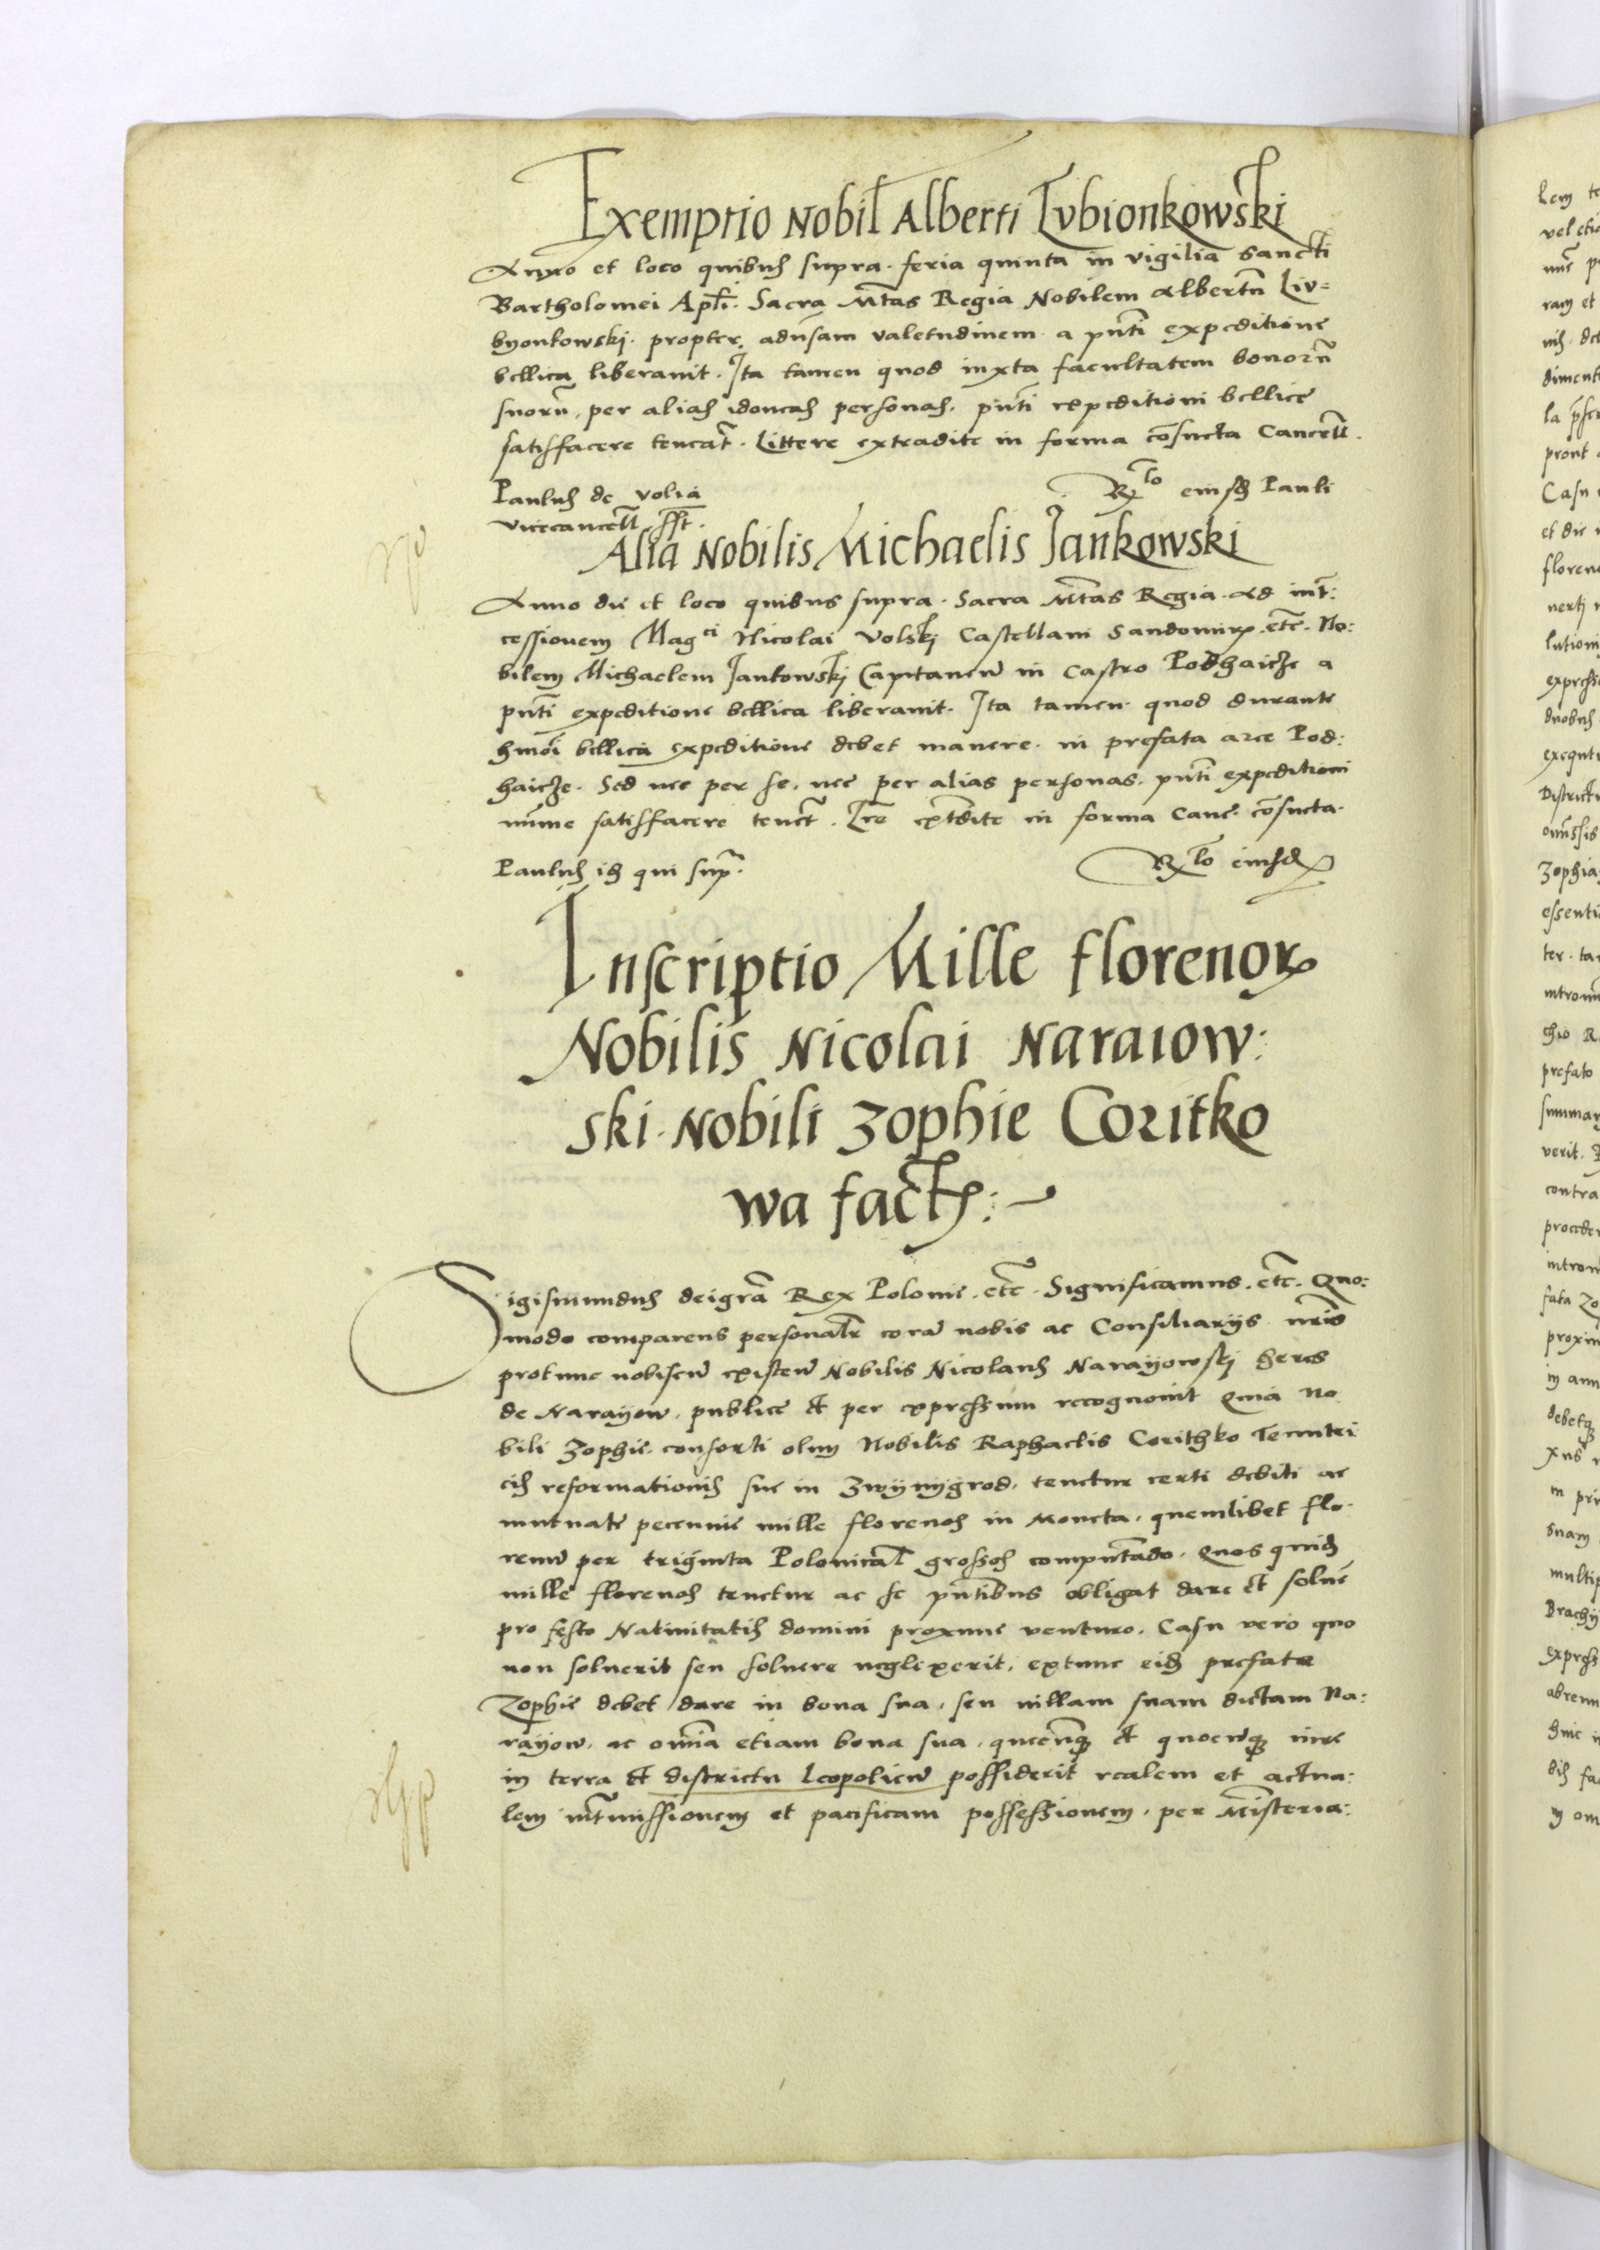 Exemptio Nobil Alberti Lvbionkowski
Anno et loco quibus supra. feria quinta in vigilia Sancti
Bartholomei Apli. Sacra Mtas Regia Nobilem Albertu Liv=
byonkowski. propter aduersam valetudinem. a pnti expeditione
bellica liberauit. Ita tamen quod iuxta facultatem bonoru
suoru, per alias idoneas personas, pnti expeditioni bellice
satisfacere teneat. Littere extradite in forma cosueta Cancell.
Paulus de Volia
Rlo eiusd Pauli
vicecancell sst.
Alia Nobilis Michaelis Jankowski
Anno die et loco quibus supra. Sacra Mtas Regia. Ad int:
cessionem Magci Nicolai Volski Castellani Sandomir. etc. No:
bilem Michaelem Jankowski Capitaneu in Castro Podhaicze a
pnti expeditione bellica liberauit. Ita tamen quod durante
hmoi bellica expeditione debet manere in prefata arce Pod:
haicze. Sed nec per se, nec per alias personas, pnti expeditioni
mime satisfacere tenet. Lre extdite in forma Canc. cosueta.
Paulus is qui sup.
Rlo eiusd
Inscriptio Mille florenor
Nobilis Nicolai Naraiow:
ski. Nobili Zophie Coritko
wa fact:
Sigismundus dei gra Rex Polonie. etc. Significamus. etc. Quo:
modo comparens personalr cora nobis ac Consiliarijs nris
protunc nobiscu existen Nobilis Nicolaus Narayowski heres
de Narayow, publice et per expressum recognouit Quia No
bili Zophie consorti olim Nobilis Raphaelis Corithko Tenutri
cis reformationis sue in Zwynygrod, tenetur certi debiti ac
mutuate peccunie mille florenos in Moneta, quemlibet flo.
renu per triginta Polonical grossos computado. Quos quid
mille florenos tenetur ac se pntibus obligat dare et solue
pro festo Natiuitatis domini proxime venturo. Casu vero quo
non soluerit seu soluere neglexerit, extunc eid prefate
Zophie debet dare in bona sua, seu villam suam dictam Na:
rayow, ac omia etiam bona sua, quecunq et quocuq iure
in terra et districtu Leopolien possiderit realem et actua:
lem intmissionem et pacificam possessionem, per Misteria: